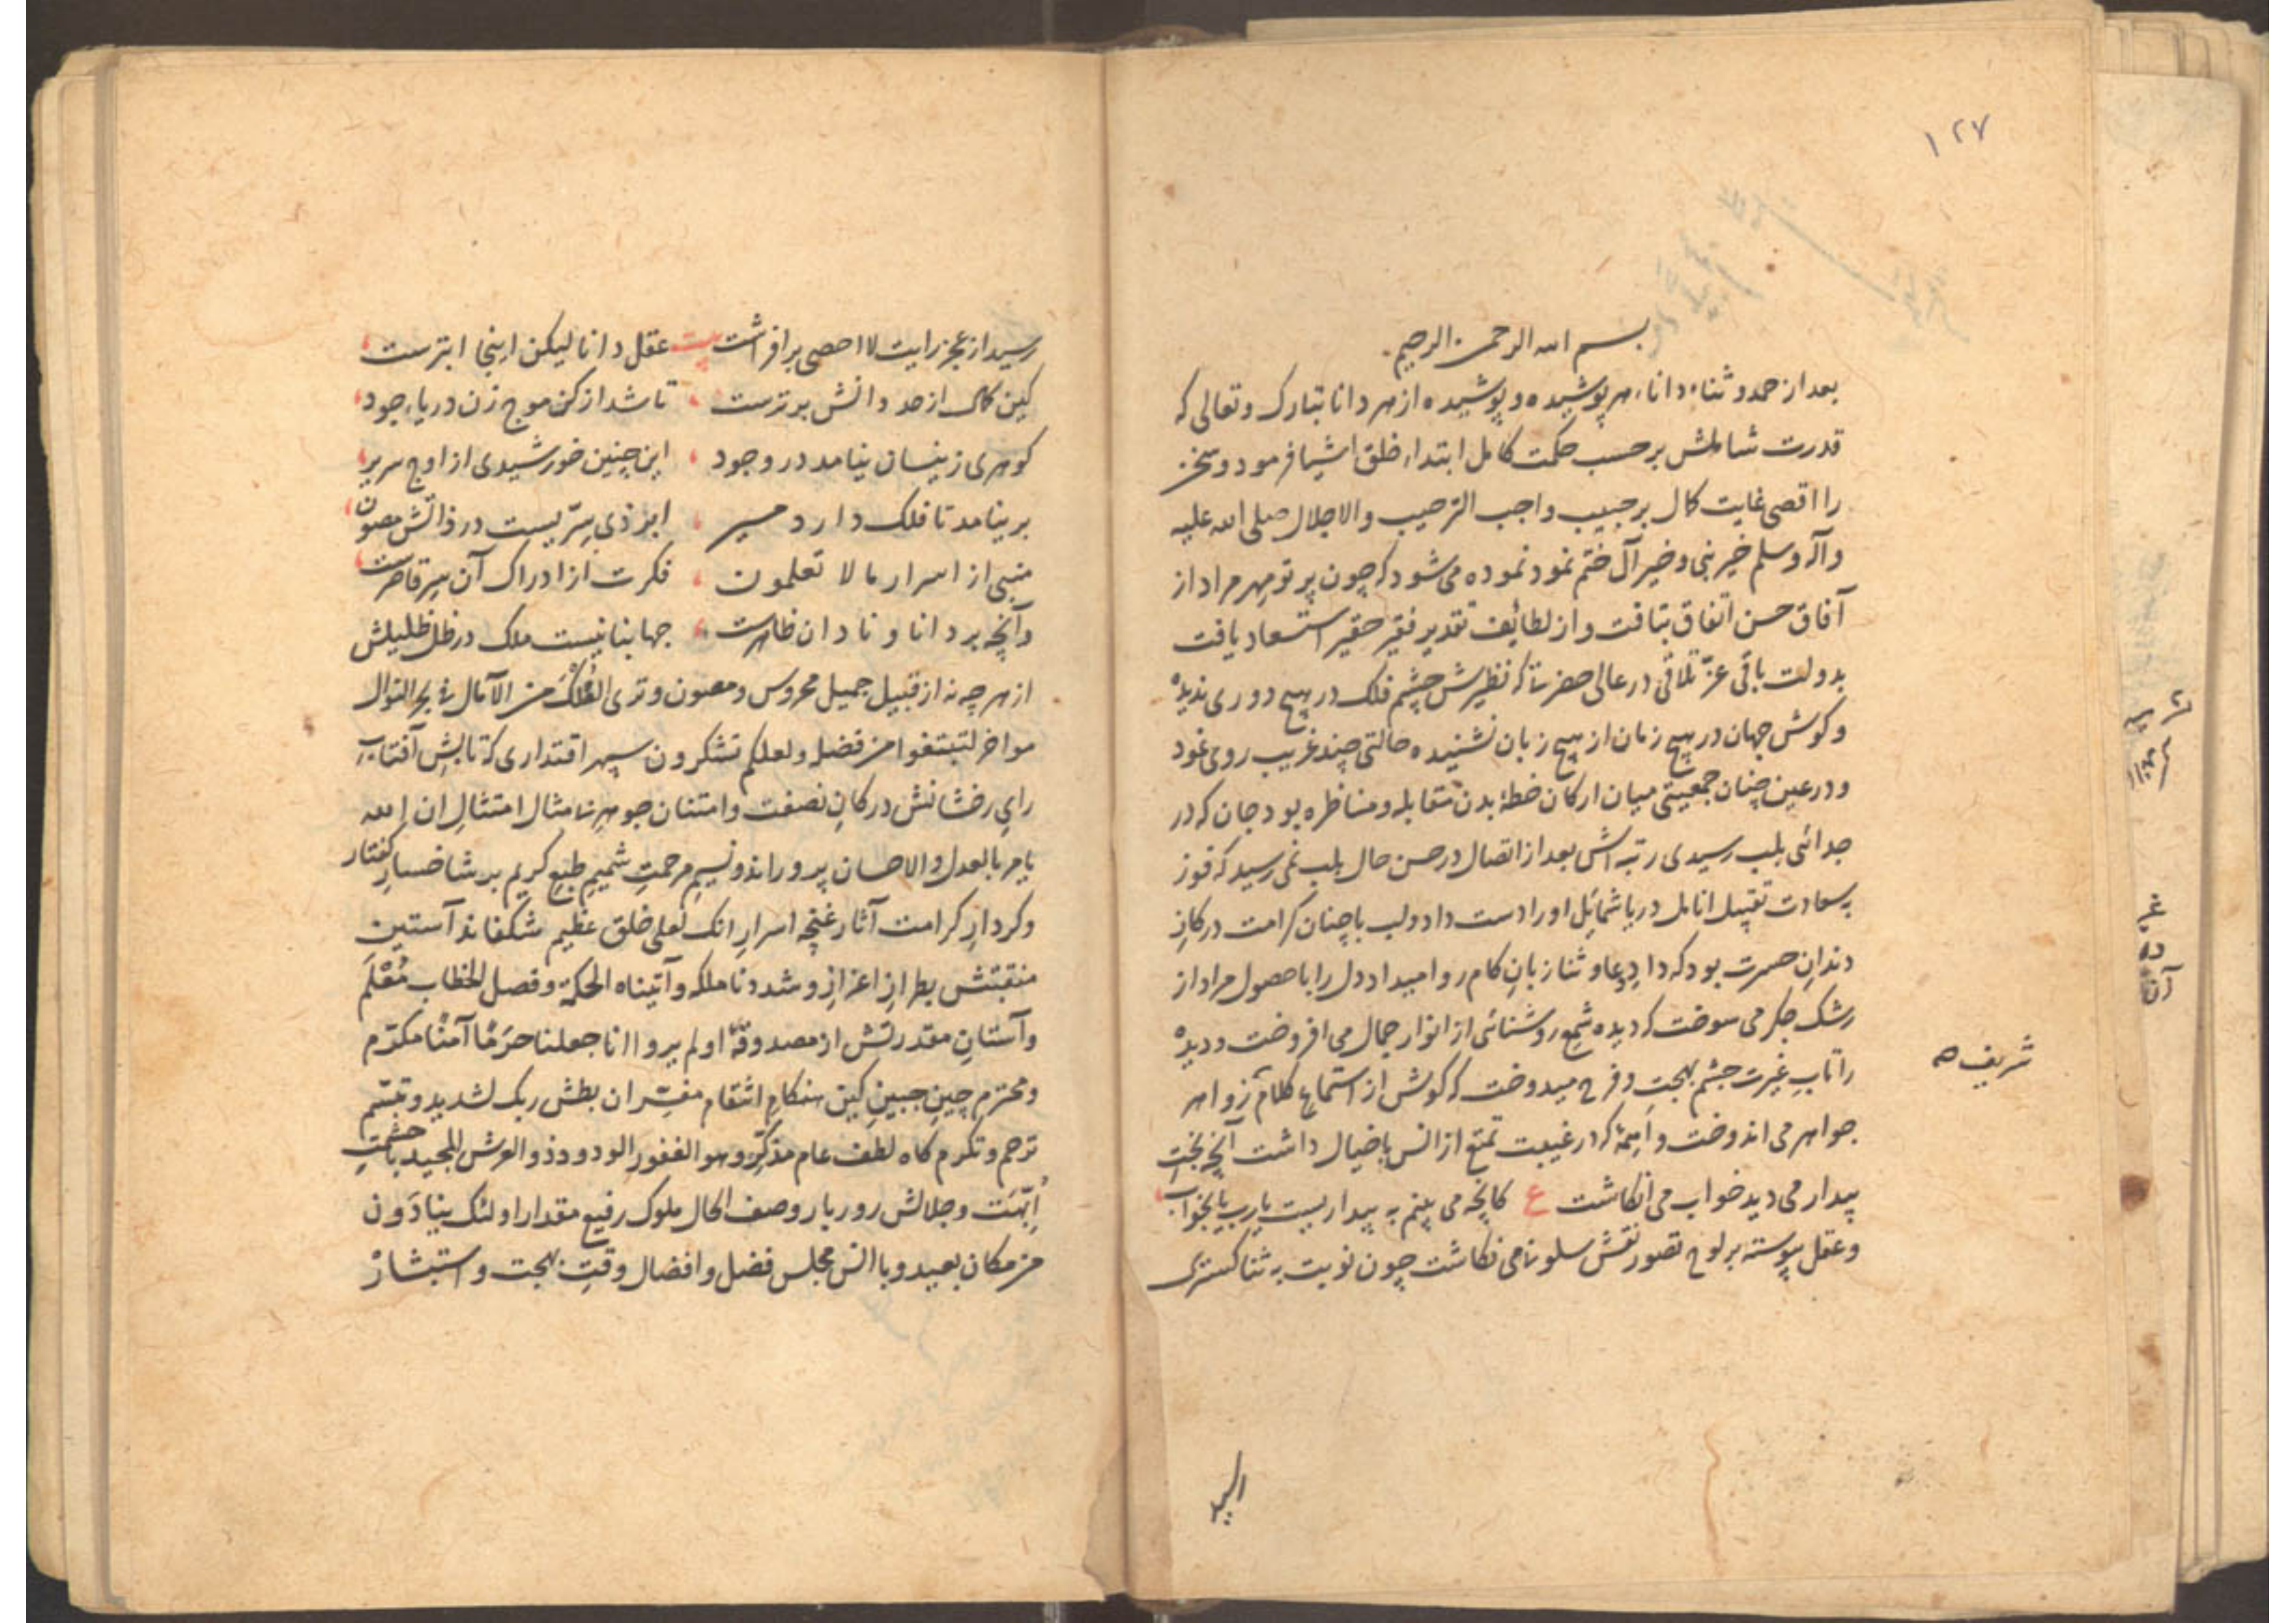 ۱۲۷
بسم الله الرحمن الرحیم
بعد از حمد و ثناء داناء هر پوشیده و پوشیده از هر دانا تبارک و تعالی که
قدرت شاملش بر حسب حکمت کامل ابتداء خلق اشیا فرمود و
را اقصی غایت کمال بر حبیب واجب الترحیب والاجلال صلی الله علیه
وآله وسلم خیر نبی و خیر آل ختم نمود نموده می‌شود که چون پرتو مهر مراد از
آفاق حسن اتفاق بتافت و از لطائف تقدیر فقیر حقیر استسعاد یافت
بدولت باقی عزّ تلاقی در عالی حضرتی که نظیرش چشم فلک در هیچ دوری ندیده
و کوش جهان در هیچ زمان از هیچ زبان نشنیده حالتی چند غریب روی نمود
و در عین چنان جمعیتی میان ارکان خطهٔ بدن مقابله و مناظره بود جان که در
جدائی بلب رسیدی رتبه‌اش بعد از اتصال در حسن حال بلب نمی رسید که فوز
به سعادت تقبیل انامل دریا شمائل او را دست داد و لب با چنان کرامت در کاز
دندانِ حسرت بود که دادِ دعا و ثنا زبانِ کام روا میداد دل را با حصول مراد از
رشک جکر می سوخت که دیده شمعِ روشنائی از انوار جمال می افروخت و دیده
را تابِ غیرت چشم بهجت و فرح میدوخت که کوش از استماع کلام زواهر
جواهر می اندوخت و ایمهٔ که در غیبت تمتع از انس با خیال داشت آنچه بخت
شریف صه
بیدار می دید خواب می انکاشت ع کانچه می بینم به بیداریست یا رب یا بخواب
و عقل پیوسته بر لوح تصور نقش سلو نامی نکاشت چون نوبت به ثنا کستری
رسید از عجز رایت لا احصی برافراشت بیت عقل دانا لیکن اینجا ابترست
کین کمال از حد دانش برترست تا شد از کن موج زن دریاء جود
کوهری زینسان نیامد در وجود این چنین خورشیدی از اوج سریر
بر نیامد تا فلک دارد مسیر ایزدی سرّیست در ذاتش مصون
منبی از اسرار ما لا تعلمون فکرت از ادراک آن سر قاصرست
وآنچه بر دانا و نادان ظاهرست جهانبانیست ملک در ظل ظلیلش
از هر چه نه از قبیل جمیل محروس و مصون وتری الفلک من الآمال فی بحر النوال
مواخر لتبتغوا من فضله ولعلکم تشکرون سپهر اقتداری که تابش آفتاب
رایِ رخشانش در کانِ نصفت و امتنان جوهر بی‌مثال امتثالِ ان الله
یامر بالعدل والاحسان پروراند و نسیم مرحمتِ شمیم طبع کریم بر شاخسار کفتار
و کردارِ کرامت آثار غنچه اسرارِ انک لعلی خلق عظیم شکفاند آستین
منقبتش بطرازِ اعزازِ وشددنا ملکه وآتیناه الحکمة وفصل الخطاب مُعْلَم
و آستانِ مقدرتش از مصدوقهٔ اولم یروا انا جعلنا حرَمًا آمنًا مکرّم
و محترم چینِ جبینِ کین هنکام انتقام مفسّر ان بطش ربک لشدید و تبسّم
ترحم و تکرم کاه لطف عام مذکّر وهو الغفور الودود ذو العرش المجید با حشمتِ
اُبّهت و جلالش روز بار وصف الحال ملوک رفیع مقدار اولئک ینادَون
من مکان بعید و با انس مجلس فضل و افضال وقتِ بهجت و استبشار